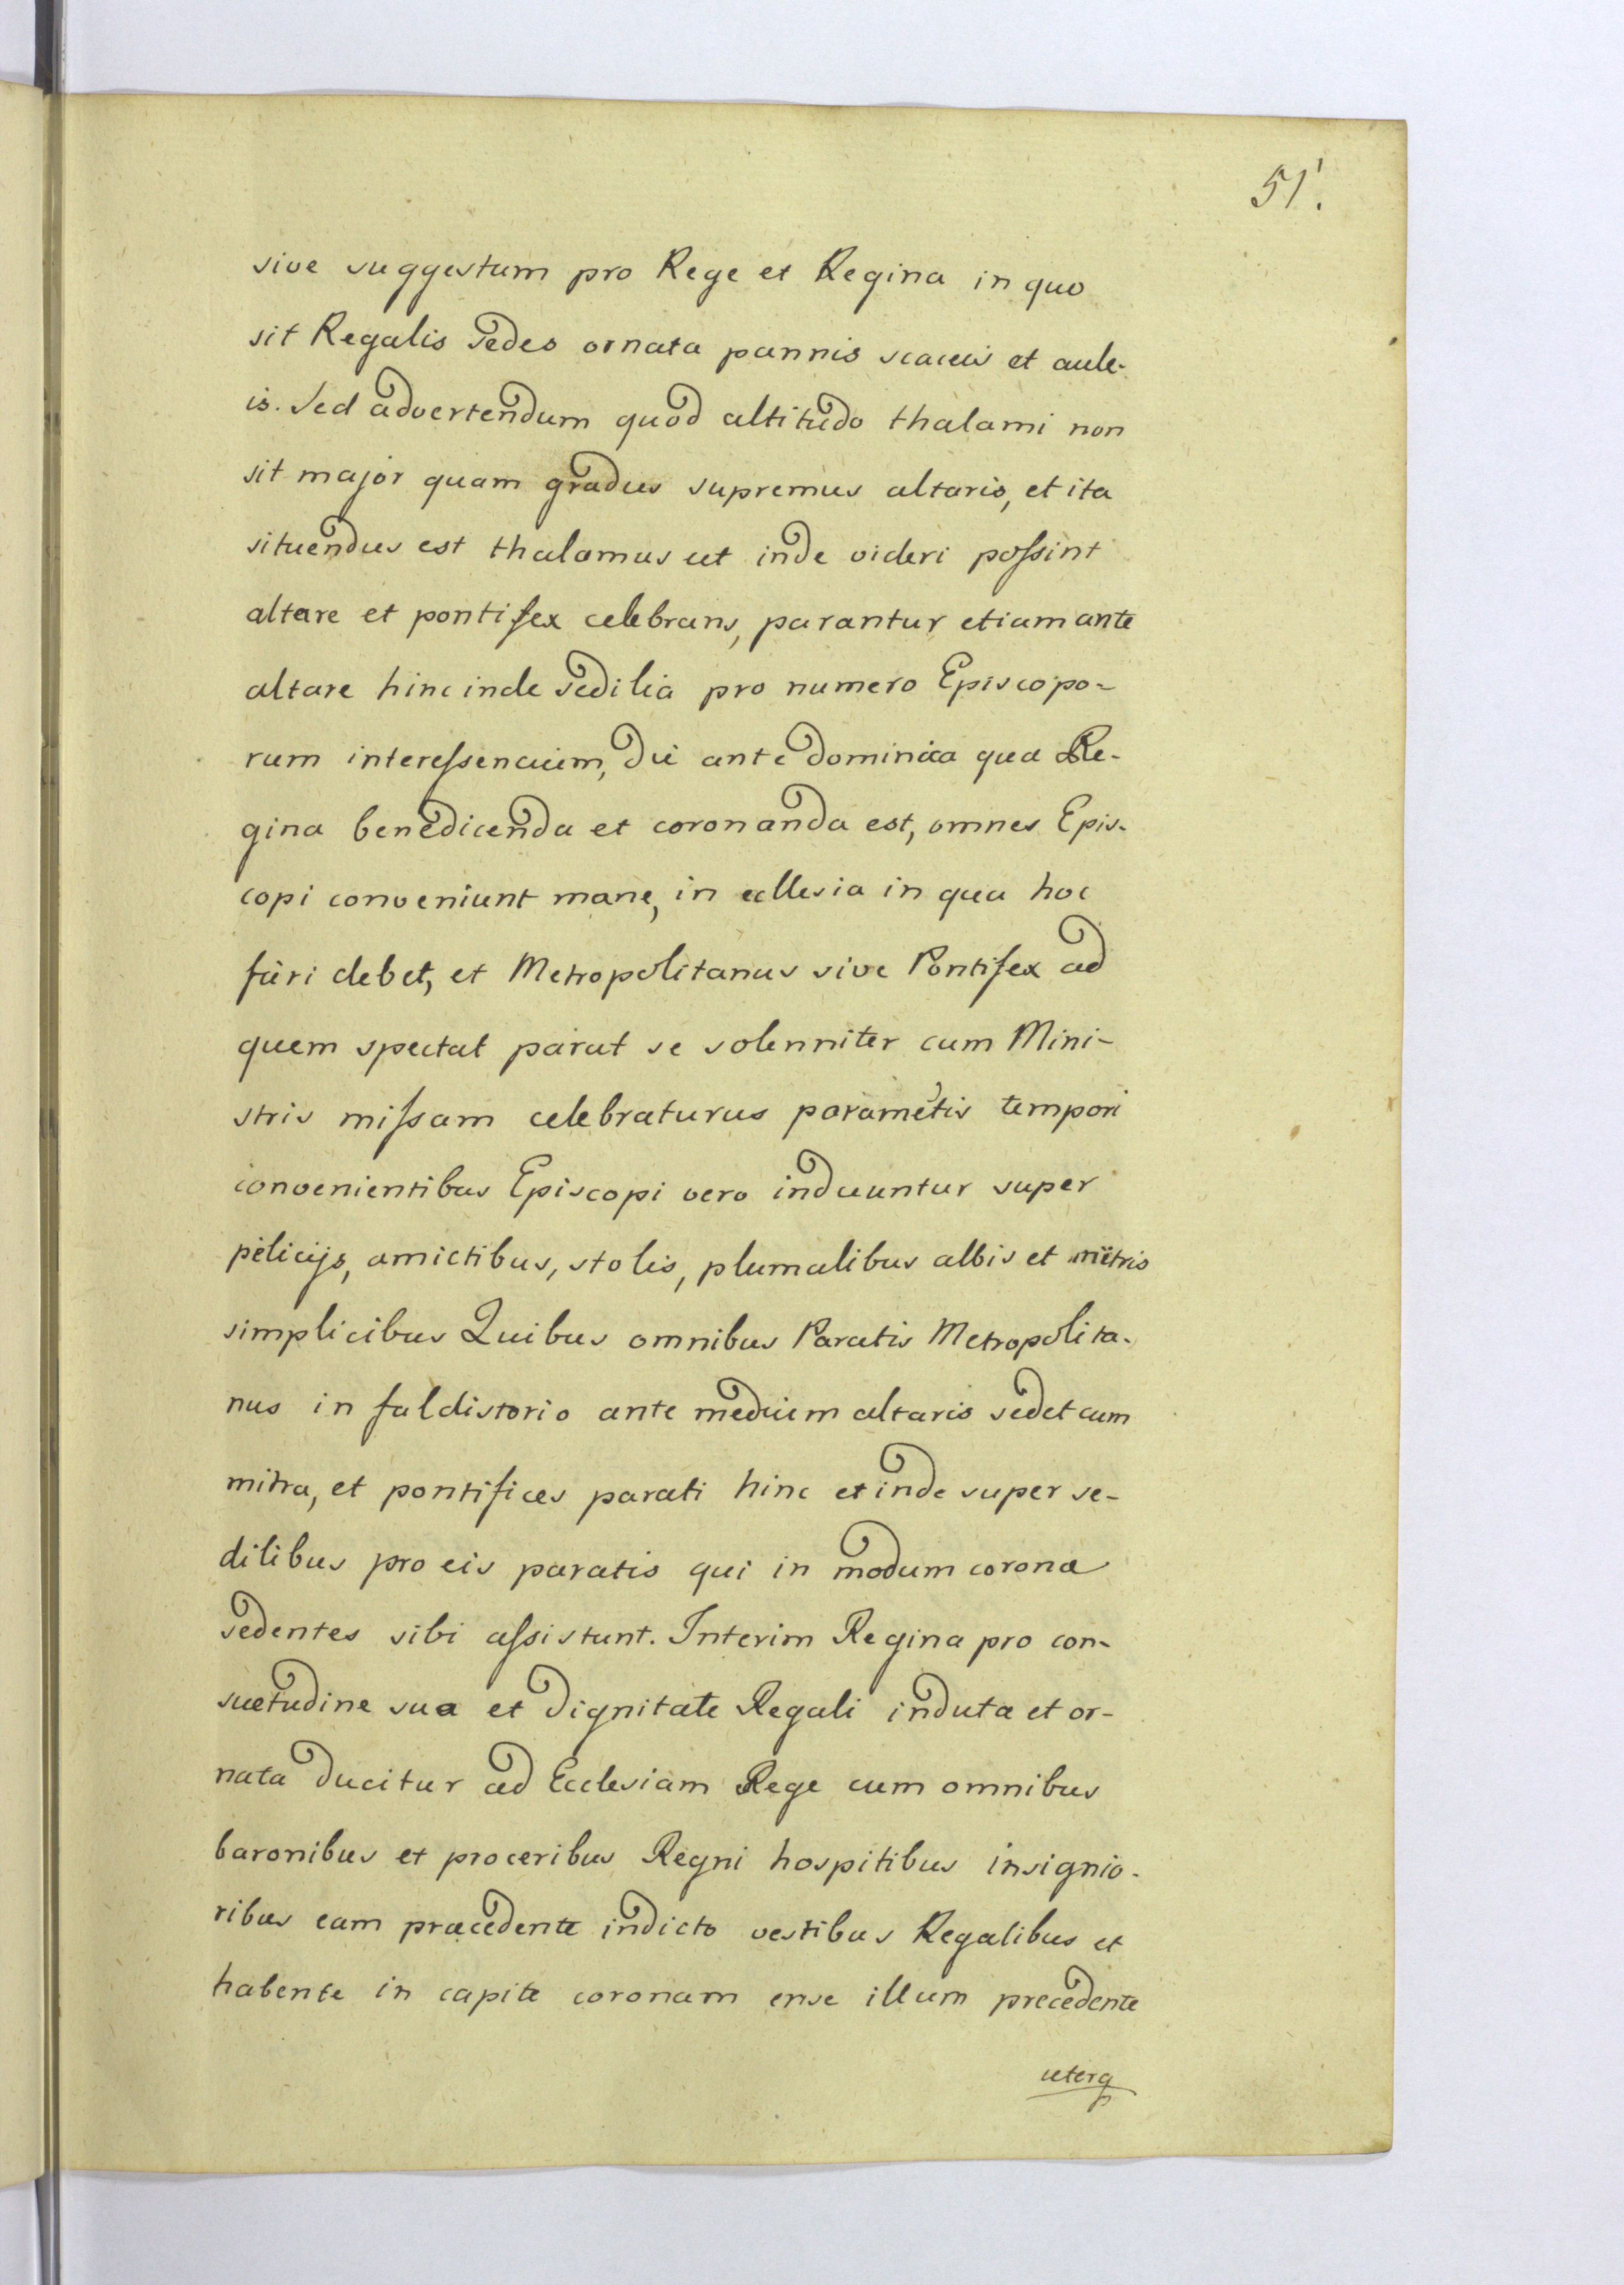 51'.
sive suggestum pro Rege et Regina in quo
sit Regalis Sedes ornata pannis scaceis et aule-
is. Sed advertendum quod altitudo thalami non
sit major quam gradus supremus altaris, et ita
situendus est thalamus ut inde videri possint
altare et pontifex celebrans, parantur etiam ante
altare hinc inde Sedilia pro numero Episcopo-
rum interessencium, die ante dominica qua Re-
gina benedicenda et coronanda est, omnes Epis-
copi conveniunt mane, in ecllesia in qua hoc
fieri debet, et Metropolitanus sive Pontifex ad
quem spectat parat se solenniter cum Mini-
stris missam celebraturus parametis tempori
convenientibus Episcopi vero induuntur super
pelicijs, amictibus, stolis, plumalibus albis et mitris
simplicibus Quibus omnibus Paratis Metropolita-
nus in faldistorio ante medium altaris sedet cum
mitra, et pontifices parati hinc et inde super se-
dilibus pro eis paratis qui in modum corona
sedentes sibi assistunt. Interim Regina pro con-
suetudine sua et dignitate Regali induta et or-
nata ducitur ad Ecclesiam Rege cum omnibus
baronibus et proceribus Regni hospitibus insignio-
ribus eam præcedente indicto vestibus Regalibus et
habente in capite coronam ense illum precedente
uterq